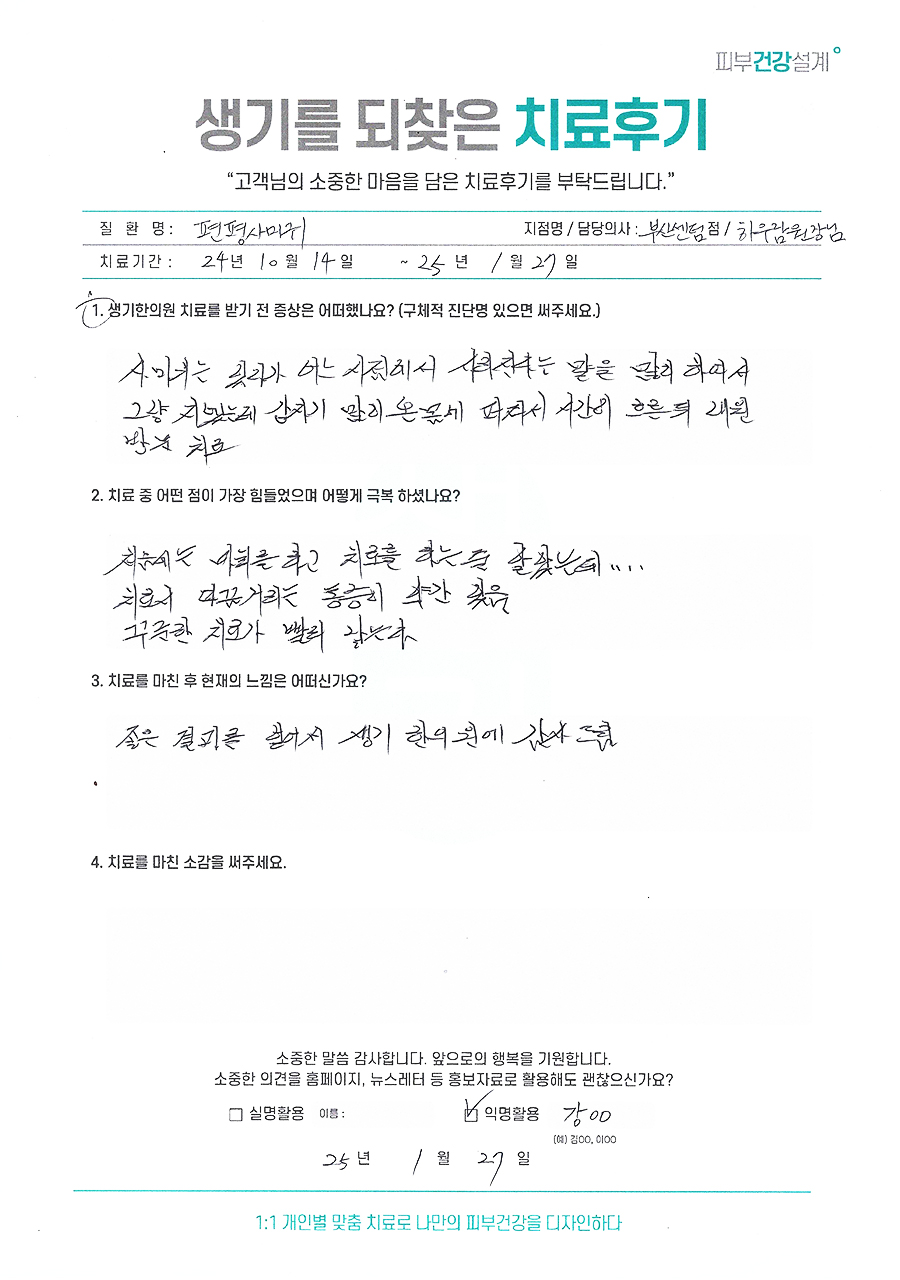 피부건강설계
생기를 되찾은 치료후기
“고객님의 소중한 마음을 담은 치료후기를 부탁드립니다.”
질 환 명 : 편평사마귀 지점명 / 담당의사 : 부산센텀점 / 하우람원장님
치료기간 : 24년 10월 14일 ~ 25년 1월 27일
1. 생기한의원 치료를 받기 전 증상은 어떠했나요? (구체적 진단명 있으면 써주세요.)
사마귀는 어느 시점에서 말을 많이 하여서
그냥 갑자기 많이 온몸에 퍼져서 시간이 흐른 뒤 내원
치료
2. 치료 중 어떤 점이 가장 힘들었으며 어떻게 극복 하셨나요?
처음에는 마취를 하고 치료를 하는줄 알았는데....
치료시 따끔거리는 통증이 약간 있음
꾸준한 치료가 빨리 낫는다.
3. 치료를 마친 후 현재의 느낌은 어떠신가요?
좋은 결과를 얻어서 생기 한의원에 감사 드림
4. 치료를 마친 소감을 써주세요.
소중한 말씀 감사합니다. 앞으로의 행복을 기원합니다.
소중한 의견을 홈페이지, 뉴스레터 등 홍보자료로 활용해도 괜찮으신가요?
실명활용 이름 : 익명활용 강OO
(예) 김OO, 이OO
25년 1월 27일
1:1 개인별 맞춤 치료로 나만의 피부건강을 디자인하다